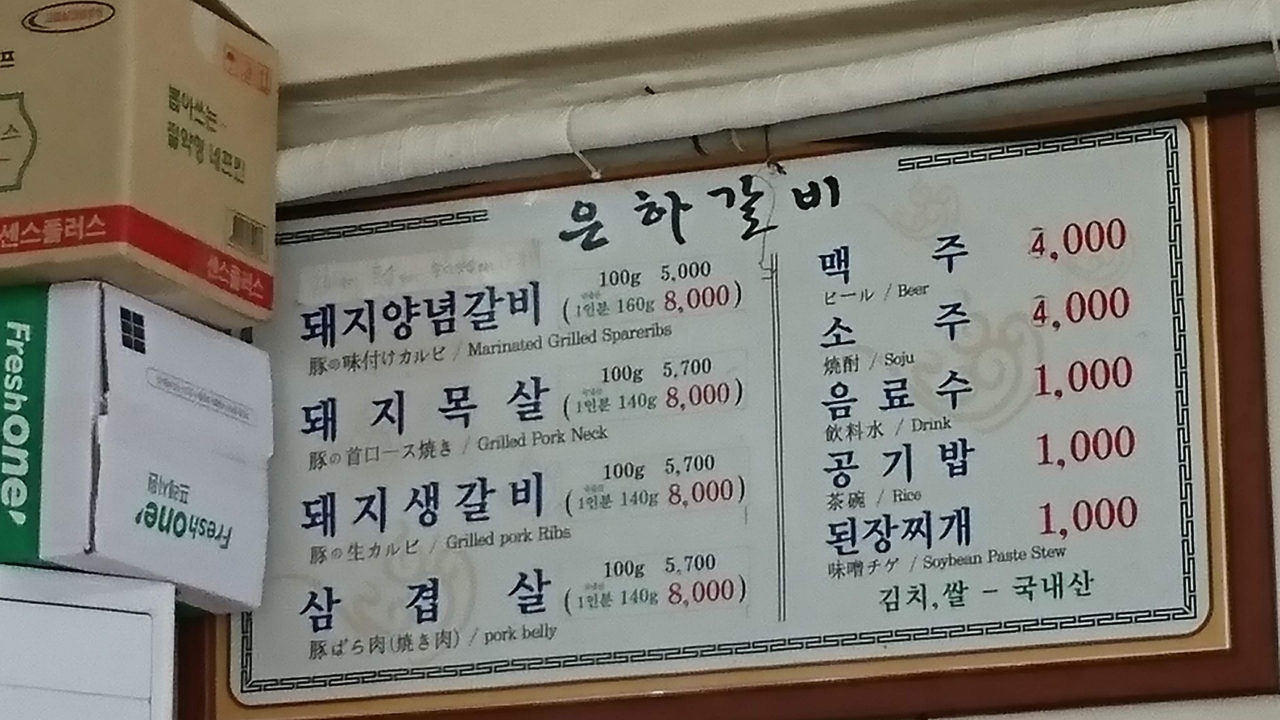 뽑아쓰는
절약형 네프킨
센스플러스
센스플러스
Freshone'
Freshone'
프레시원
은하갈비
100g 5,000
돼지양념갈비 (1인분 160g 8,000)
豚の味付けカルビ / Marinated Grilled Spareribs
100g 5,700
돼지목살 (1인분 140g 8,000)
豚の首ロース焼き / Grilled Pork Neck
100g 5,700
돼지생갈비 (1인분 140g 8,000)
豚の生カルビ / Grilled pork Ribs
100g 5,700
삼겹살 (1인분 140g 8,000)
豚ばら肉(焼き肉) / pork belly
맥주 4,000
ビール / Beer
소주 4,000
焼酎 / Soju
음료수 1,000
飲料水 / Drink
공기밥 1,000
茶碗 / Rice
된장찌개 1,000
味噌チゲ / Soybean Paste Stew
김치,쌀 - 국내산